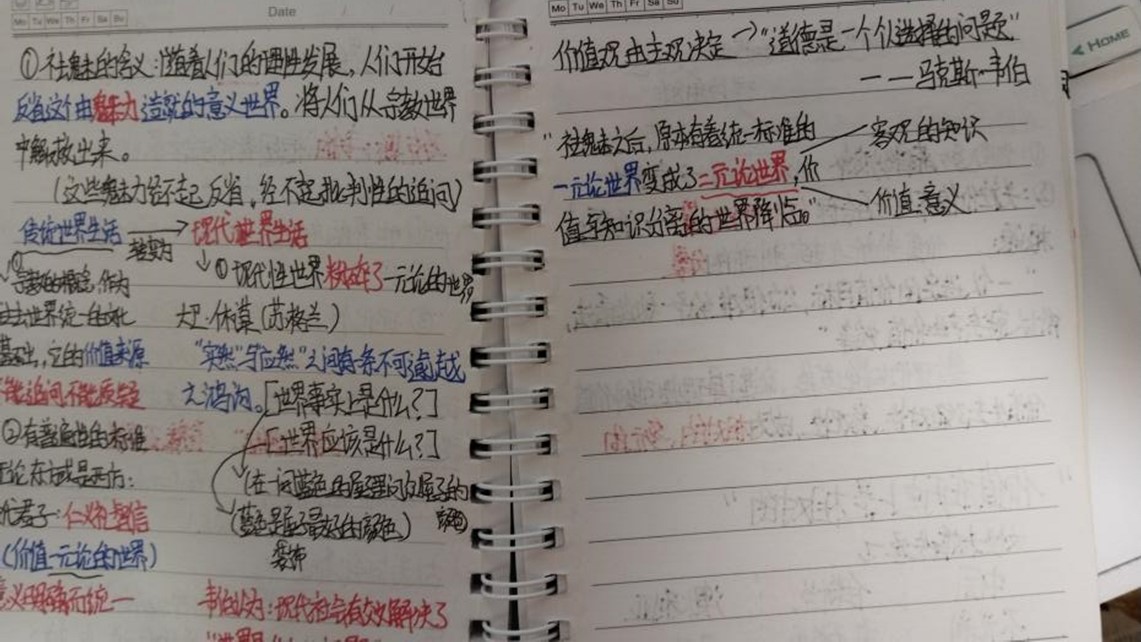 Mo Tu We Th Fr Sa Su
Date / /
①祛魅的含义:随着人们的理性发展,人们开始
反省这个由魅力造就的意义世界。将人们从宗教世界
中解救出来。
(这些魅力经不起反省,经不起批判性的追问)
传统世界生活 →转变为 现代世界生活
①宗教的概念,作为
过去世界统一的文化
基础,它的价值来源
不能追问不能质疑
②有普遍性的标准
无论东方或是西方:
君子:仁义礼智信
(价值一元论的世界)
意义明确而统一
↓①现代性世界粉碎了一元论的世界
大卫·休谟(苏格兰)
"实然"与"应然"之间有一条不可逾越
之鸿沟。[世界事实上是什么?]
[世界应该是什么?]
(在一间蓝色的屋子里问你屋子的颜色)
(蓝色是屋子最好的颜色)
韦伯认为:现代社会有效解决了
Mo Tu We Th Fr Sa Su
价值观由主观决定→"道德是一个人选择的问题"
——马克斯·韦伯
"祛魅之后,原本有着统一标准的
一元论世界变成了二元论世界,价
值与知识分离的世界降临。"
客观的知识
价值意义
HOME